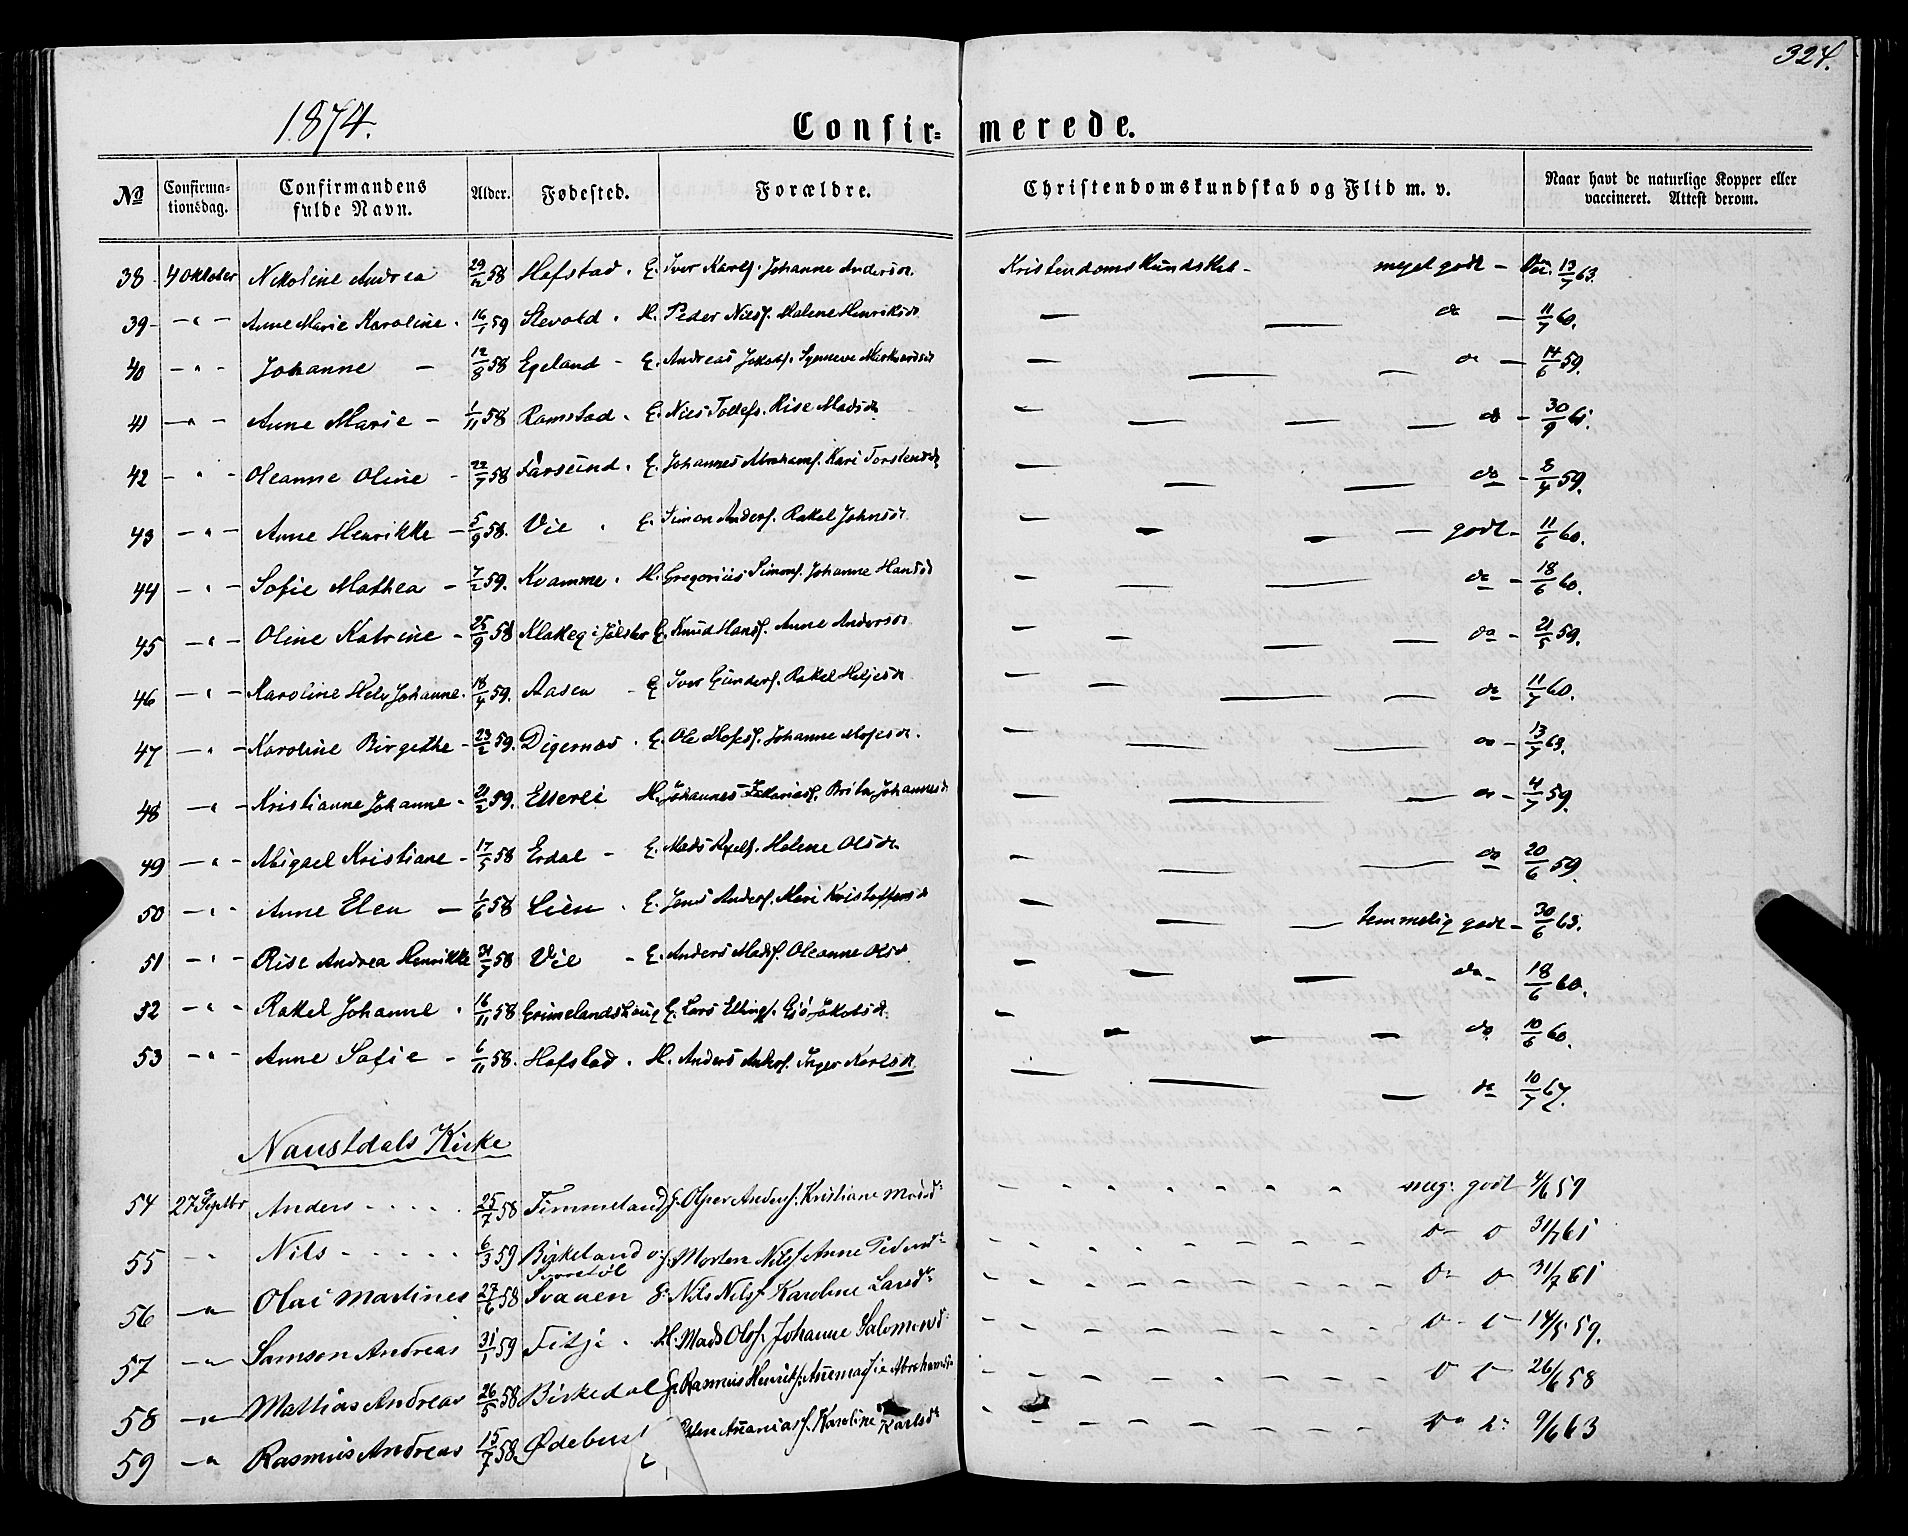 324.
1874.
Confir= merede.
No Confirmationsdag. Confirmandens fulde Navn. Alder. Fødested. Forældre. Christendomskundskab og Flid m. v. Naar havt de naturlige Kopper eller vaccineret. Attest derom.
38 - 4 Oktober Nikoline Andrea 29/12 58 Hafstad. E. Iver Karlss. Johanne Andersdr. Kristendomskundskab - meget godt - Vac. 13/7 63.
39 - — " — Anne Marie Karoline. 16/1 59 Stevold. H. Peder Nilss. Malene Henriksdr — do — 11/7 60.
40 — " — Johanne — 12/8 58 Egeland - E. Andreas Jakobs. Synneve — do — 14/6 59.
41 — " — Anne Marie — 1/11 58 Ramstad. E. Nils Tollefs. Rise Madsdr — do - 30/9 61.
42 — " — Oleanne Oline - 22/7 58 Farsund. E. Johannes Abrahams. Kari Torstensdr — do - 8/7 59.
43 — " — Anne Henrikke — 5/9 58. Vie. E. Simon Anders. Rakel Johnsdr. — godt - 11/6 60.
44 — " — Sofie Mathea — 7/2 59. Kvamme. H. Gregorius Simons. Johanne Hansdr — do - 18/6 60.
45 — " — Oline Katrine - 25/9 58 Klakeg i Jølster E. Knud Hans. Anne Andersdr — do - 21/5 59.
46 — " — Karoline Johanne. 18/4 59. Aasen - E Iver Gunders. Rakel Heljesdr — do 11/7 60.
47 — " — Karoline Birgethe - 23/2 59. Digernæs. E. Ole Moses. Johanne Mosesdr. — do - 13/7 63.
48 — " — Kristianne Johanne - 21/2 59. Ellerei H. Johannes Brita Johannesdr — do - 4/7 59.
49 — " — Abigael Kristiane - 17/5 58 Erdal - E. Mads Malene Olsdr. — do 20/6 59.
50 — " — Anne Elen — 1/6 58 Lien. E. Jens Anders. Mari Kristoffersdr — temmelig godt - 30/6 63.
51 — " — Rise Andrea Henrikke 31/7 58 Vie - E. Anders Mads. Oleanne Olsdr — do - 18/6 60.
52 — " — Rakel Johanne. 16/11 58 Grimelandshaug E. Lars Ellings. Johobsdr. — do 10/6 60.
53 — " — Anne Sofie - 6/11 58. Hafstad. H. Anders Anders. Inger Karlsdr. — do 10/7 67.
Naustdals Kirke
54 27 Septbr Anders - - - - 25/7 58 Timmeland E. Anders. Kristiane Madsd: - - - - meg: godt 4/6 59
55 " Nils - - - - 6/3 59 Birkeland Morten Nilss. Anne Pedersd: - - - - D- D 31/7 61
56 — " — Olai Martines 27/6 58 Svanen E: Nils Nilss Karoline Larsd: - - - - D- D 31/7 61
57 — " — Samson Andreas 31/1 59 Fitje. H. Mads Olss. Johanne Salomonsd: - - - - D- D- 14/5 59.
58 — " — Mathias Andreas 26/5 58 Birkedal E. Rasmus Henriks. Abrahamsd: - - - - D D 26/6 58
59 — " — Rasmus Andreas 15/7 58 Ødebust Ananiass. Karoline Karlsd: - - - - D- D: 9/6 63